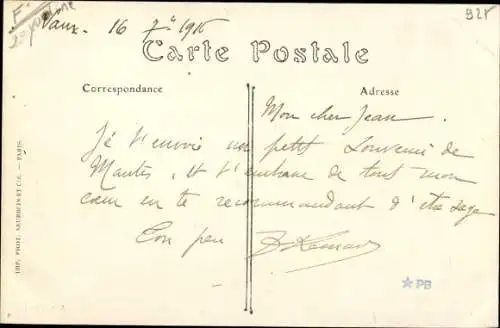 Vaux. 16 7e 1915
928
Carte Postale
Correspondance
Adresse
Mon cher Jean.
Je t'envoie un petit souvenir de
Mantes, et t'embrasse de tout mon
cœur en te recommandant d'être sage
Ton père
IMP. PHOT. NEURDEIN ET CIE. - PARIS.
PB